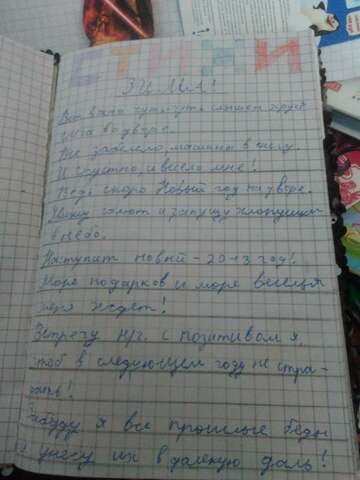 СТИХИ
ЗИМА!
чуть чуть слышен
во дворе.
Всё забелело, машины в снегу.
И грустно, и весело мне!
Ведь скоро Новый год на дворе.
салют и запущу хлопушки
в небо.
Наступит новый - 2013 год!
Море подарков и море веселья
меня ждет!
Встречу н/г. с позитивом я,
чтоб в следующем году не стра-
дать!
Забуду я все прошлые беды
И унесу их в далекую даль!